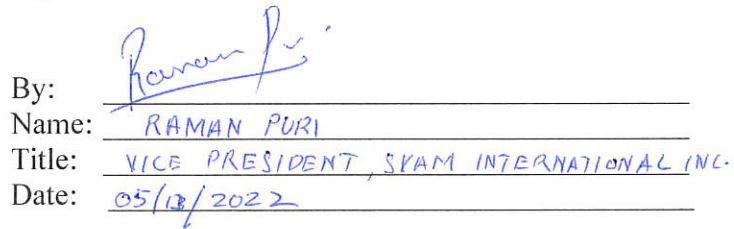 By: Raman Puri
Name: RAMAN PURI
Title: VICE PRESIDENT, SVAM INTERNATIONAL INC.
Date: 05/13/2022